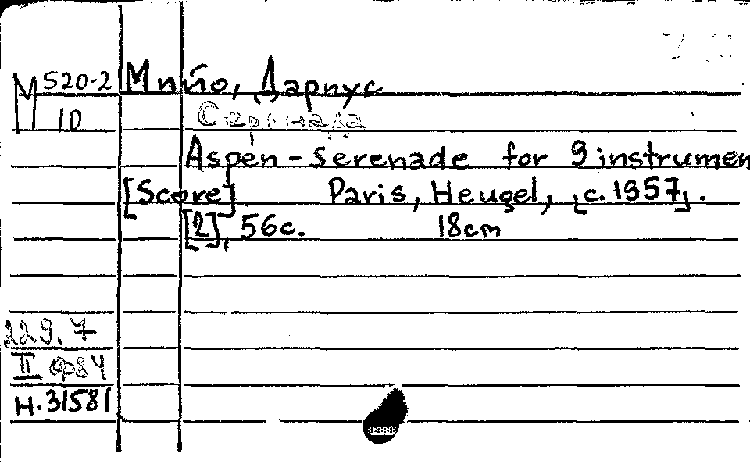 М 520-2 Мийо, Дариус
10 Серенада
Aspen - Serenade for 9 instrumen
[Score] Paris, Heugel, [c. 1957].
[2], 56c. 18cm
229.7
II ф84
н.31581